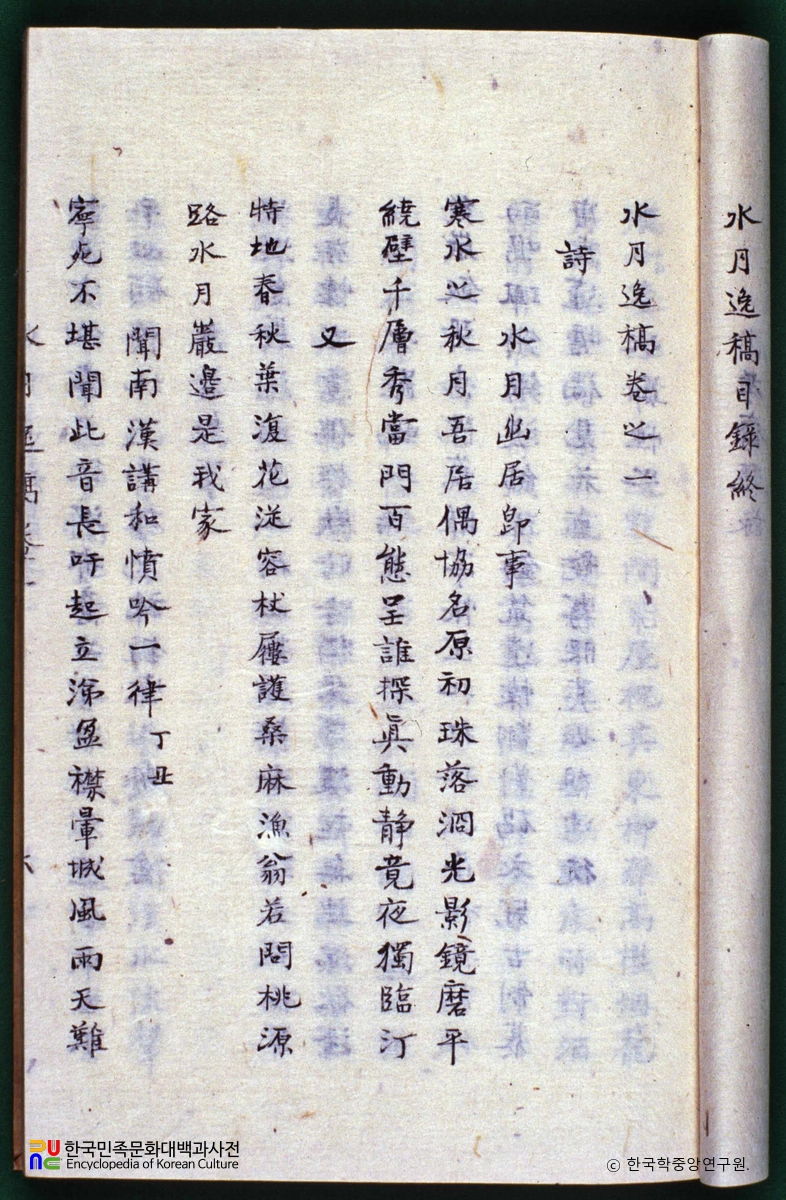 水月逸稿目錄終
水月逸稿卷之一
詩
水月幽居卽事
寒水之秋月吾居偶協名原初珠落泂光影鏡磨平
繞壁千層秀當門百態呈誰探眞動静竟夜獨臨汀
又
特地春秋葉復花從容杖屨護桑麻漁翁若問桃源
路水月巖邉是我家
聞南漢講和憤吟一律 丁丑
寧死不堪聞此音長吁起立涕盈襟暈城風雨天難
水月逸稿卷之一
六
한국민족문화대백과사전
Encyclopedia of Korean Culture
ⓒ 한국학중앙연구원.